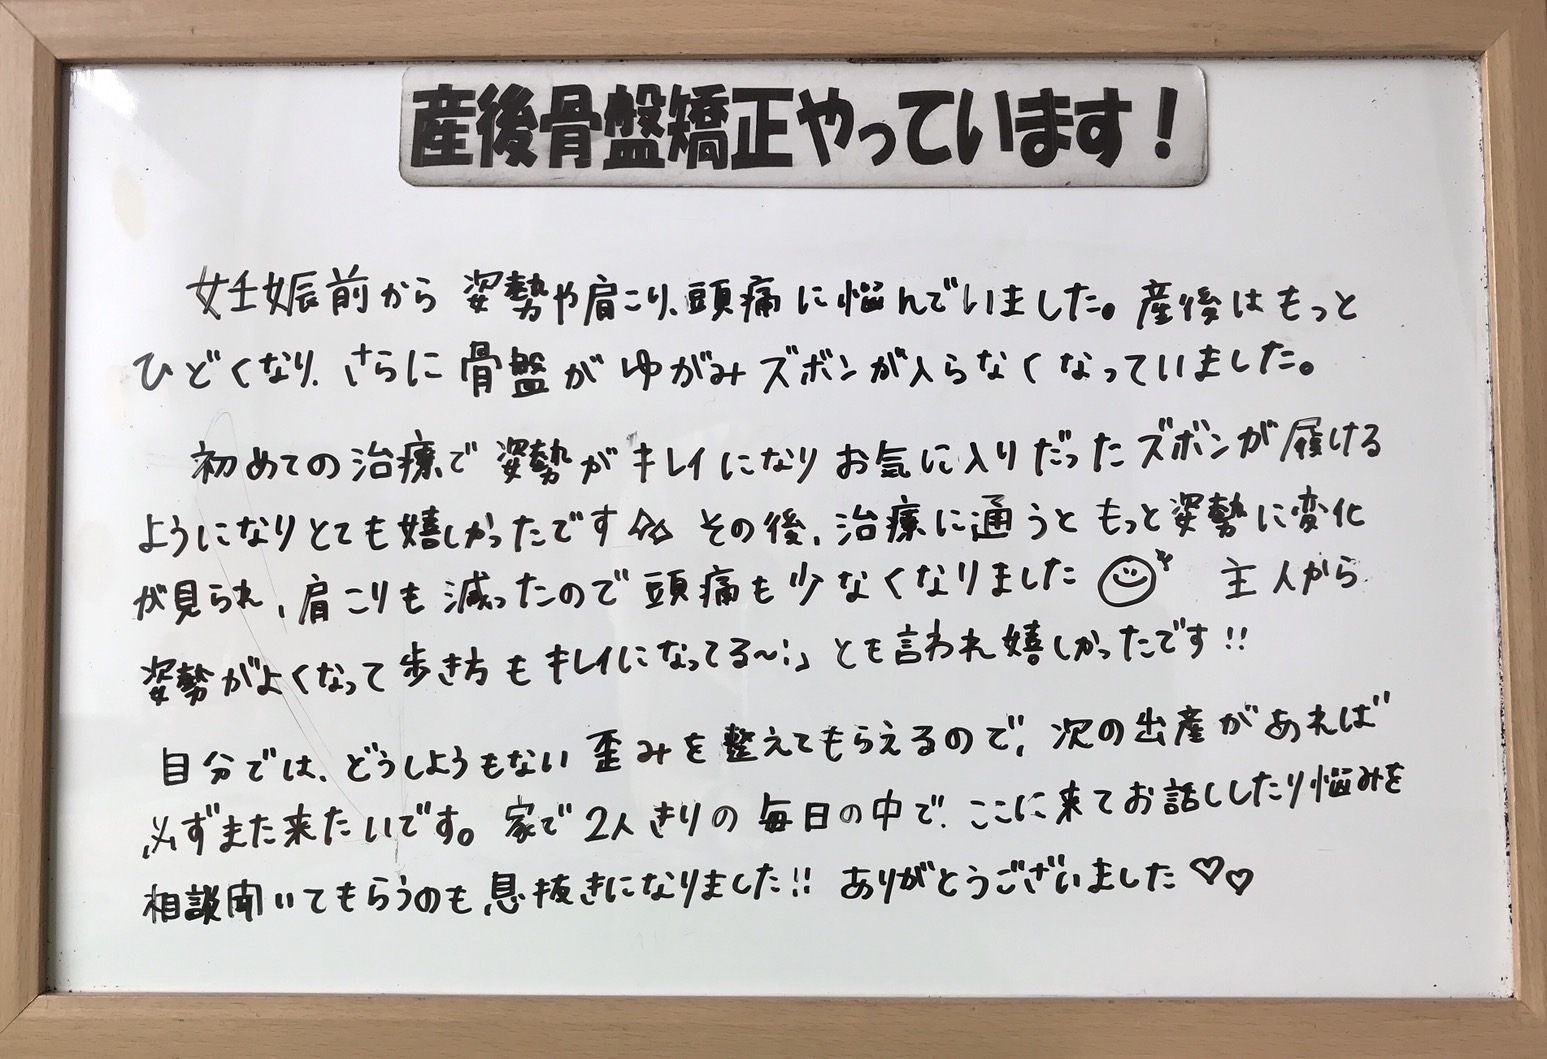 産後骨盤矯正やっています!
妊娠前から 姿勢や肩こり、頭痛に悩んでいました。産後はもっと
ひどくなり、さらに骨盤がゆがみズボンが入らなくなっていました。
初めての治療で姿勢がキレイになりお気に入りだったズボンが履ける
ようになりとても嬉しかったです☆☆ その後、治療に通うともっと姿勢に変化
が見られ、肩こりも減ったので頭痛も少なくなりました 主人から
姿勢がよくなって歩き方もキレイになってる〜!」とも言われ嬉しかったです!!
自分では、どうしようもない歪みを整えてもらえるので、次の出産があれば
必ずまた来たいです。家で2人きりの毎日の中で、ここに来てお話ししたり悩みを
相談聞いてもらうのも息抜きになりました!! ありがとうございました♡♡